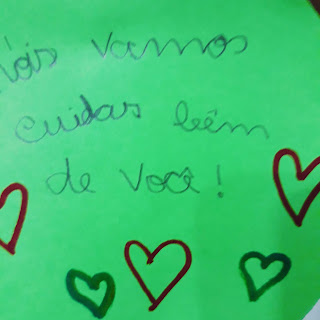 Nóis vamos
cuidar bém
de você!